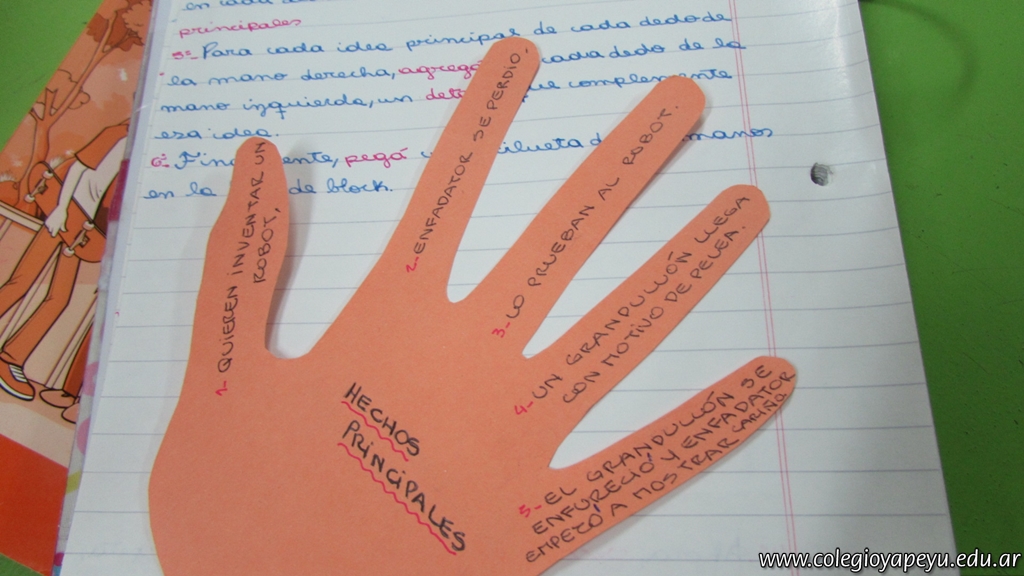 en cada
principales
5º Para cada idea principal de cada dedo de
la mano derecha, agregá cada dedo de la
mano izquierda, un que complemente
esa idea.
6º pegá manos
en la de block.
1- QUIEREN INVENTAR UN
ROBOT.
2- ENFADATOR SE PERDIÓ.
3- LO PRUEBAN AL ROBOT.
4- UN GRANDULLÓN LLEGA
CON MOTIVO DE PELEA.
5- EL GRANDULLÓN SE
ENFURECIÓ Y ENFADATOR
EMPEZÓ A MOSTRAR CARIÑO
HECHOS
PRINCIPALES
www.colegioyapeyu.edu.ar